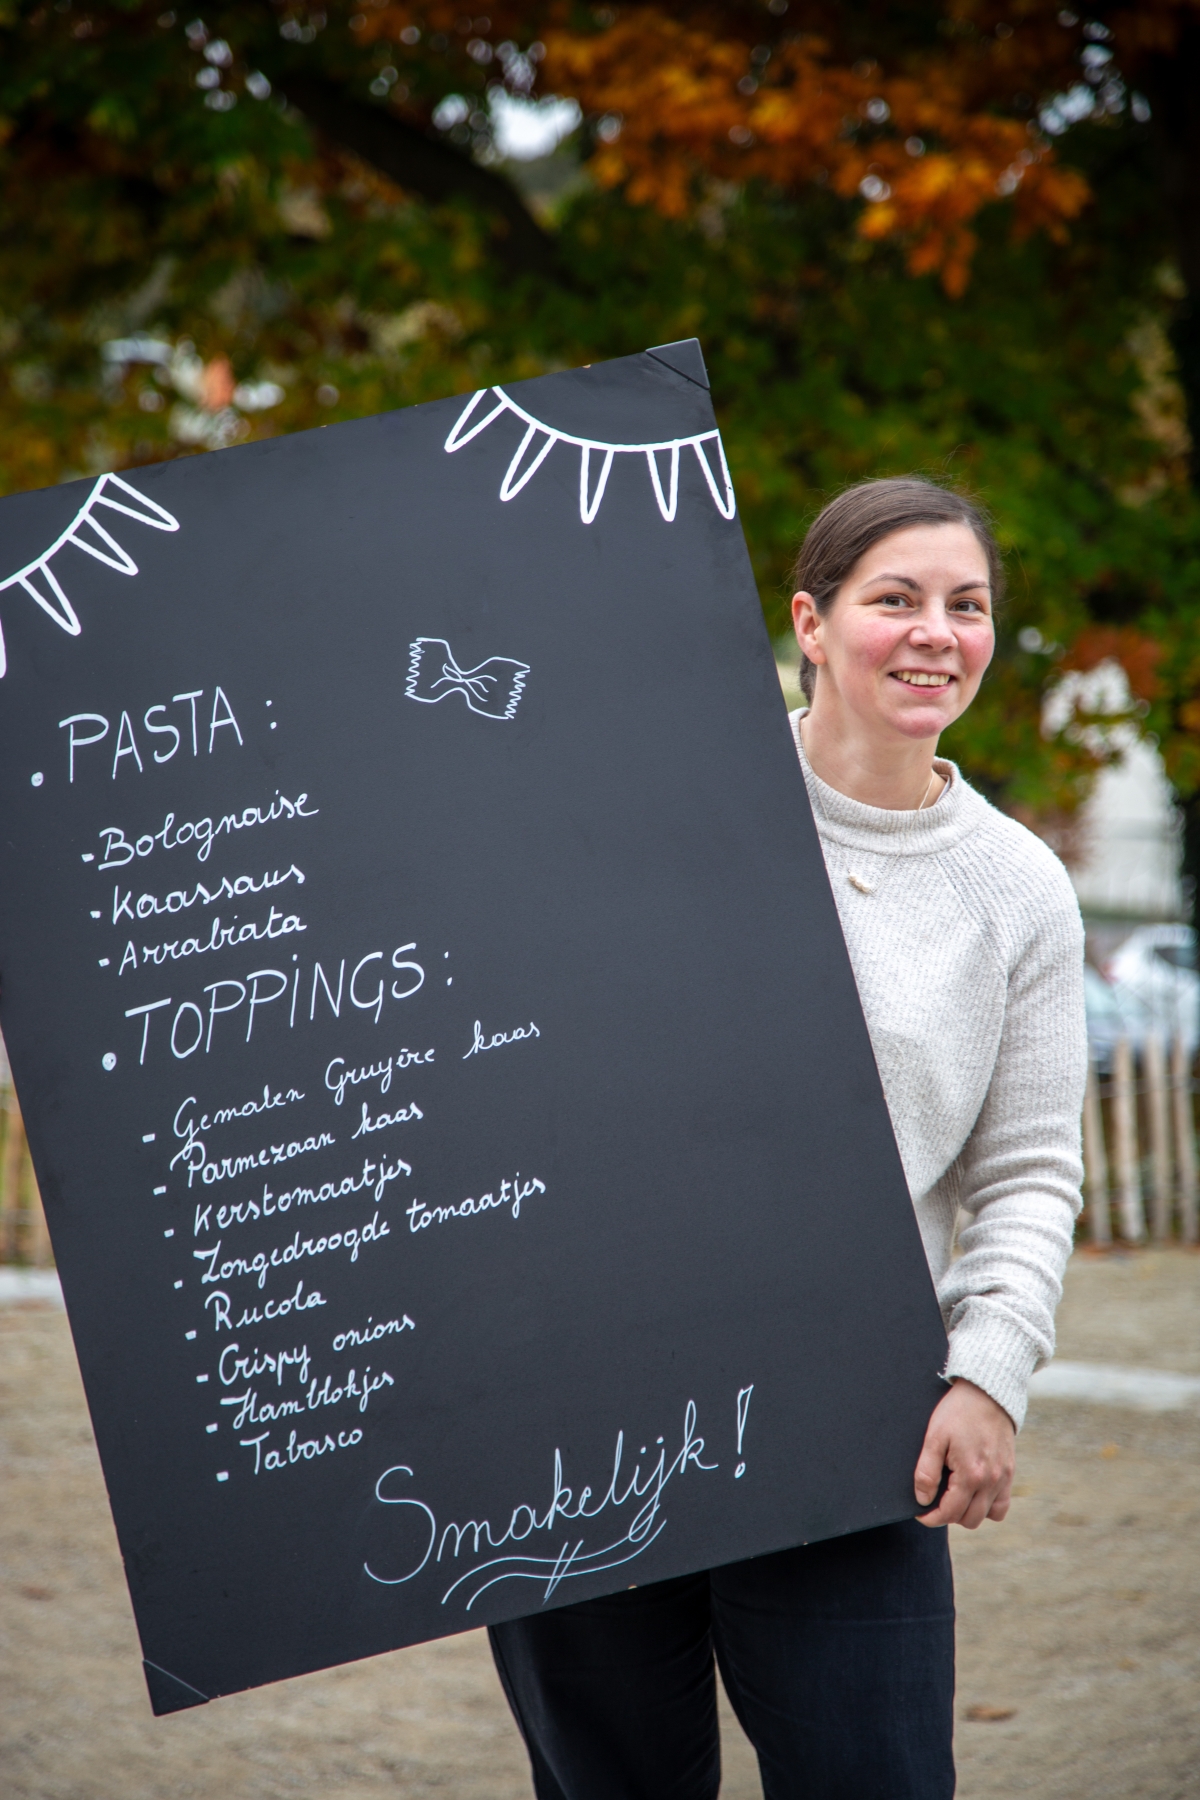 . PASTA :
- Bolognaise
- Kaassaus
- Arrabiata
. TOPPINGS :
- Gemalen Gruyère kaas
- Parmezaan kaas
- Kerstomaatjes
- Zongedroogde tomaatjes
- Rucola
- Crispy onions
- Hamblokjes
- Tabasco
Smakelijk !